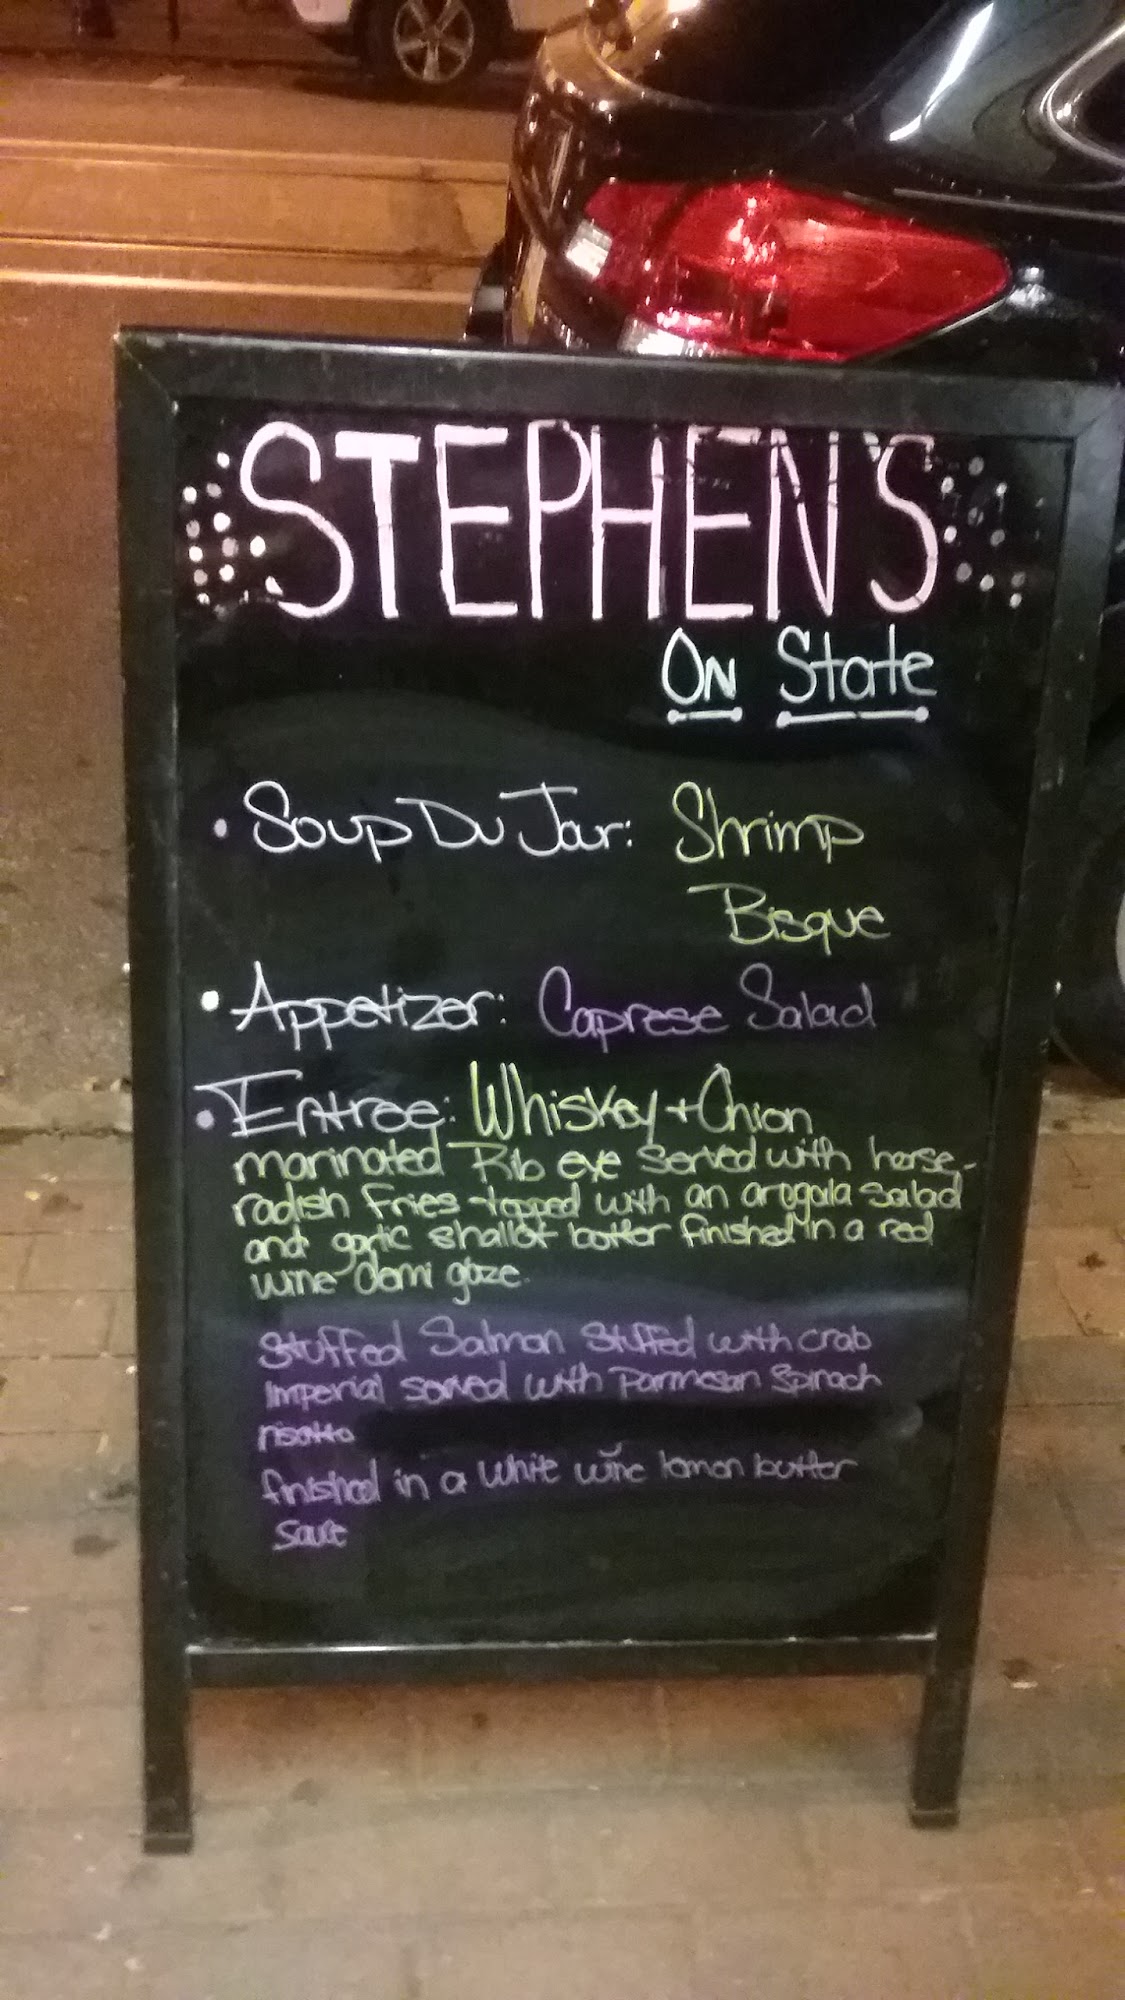 STEPHEN'S
ON State
• Soup Du Jour: Shrimp
Bisque
• Appetizer: Caprese Salad
• Entree: Whiskey + Onion
marinated Rib eye served with horse-
radish Fries topped with an arugala salad
and garlic shallot butter finished in a red
wine demi glaze.
Stuffed Salmon Stuffed with crab
Imperial served with Parmesan Spinach
risotto
finished in a white wine lemon butter
sauce